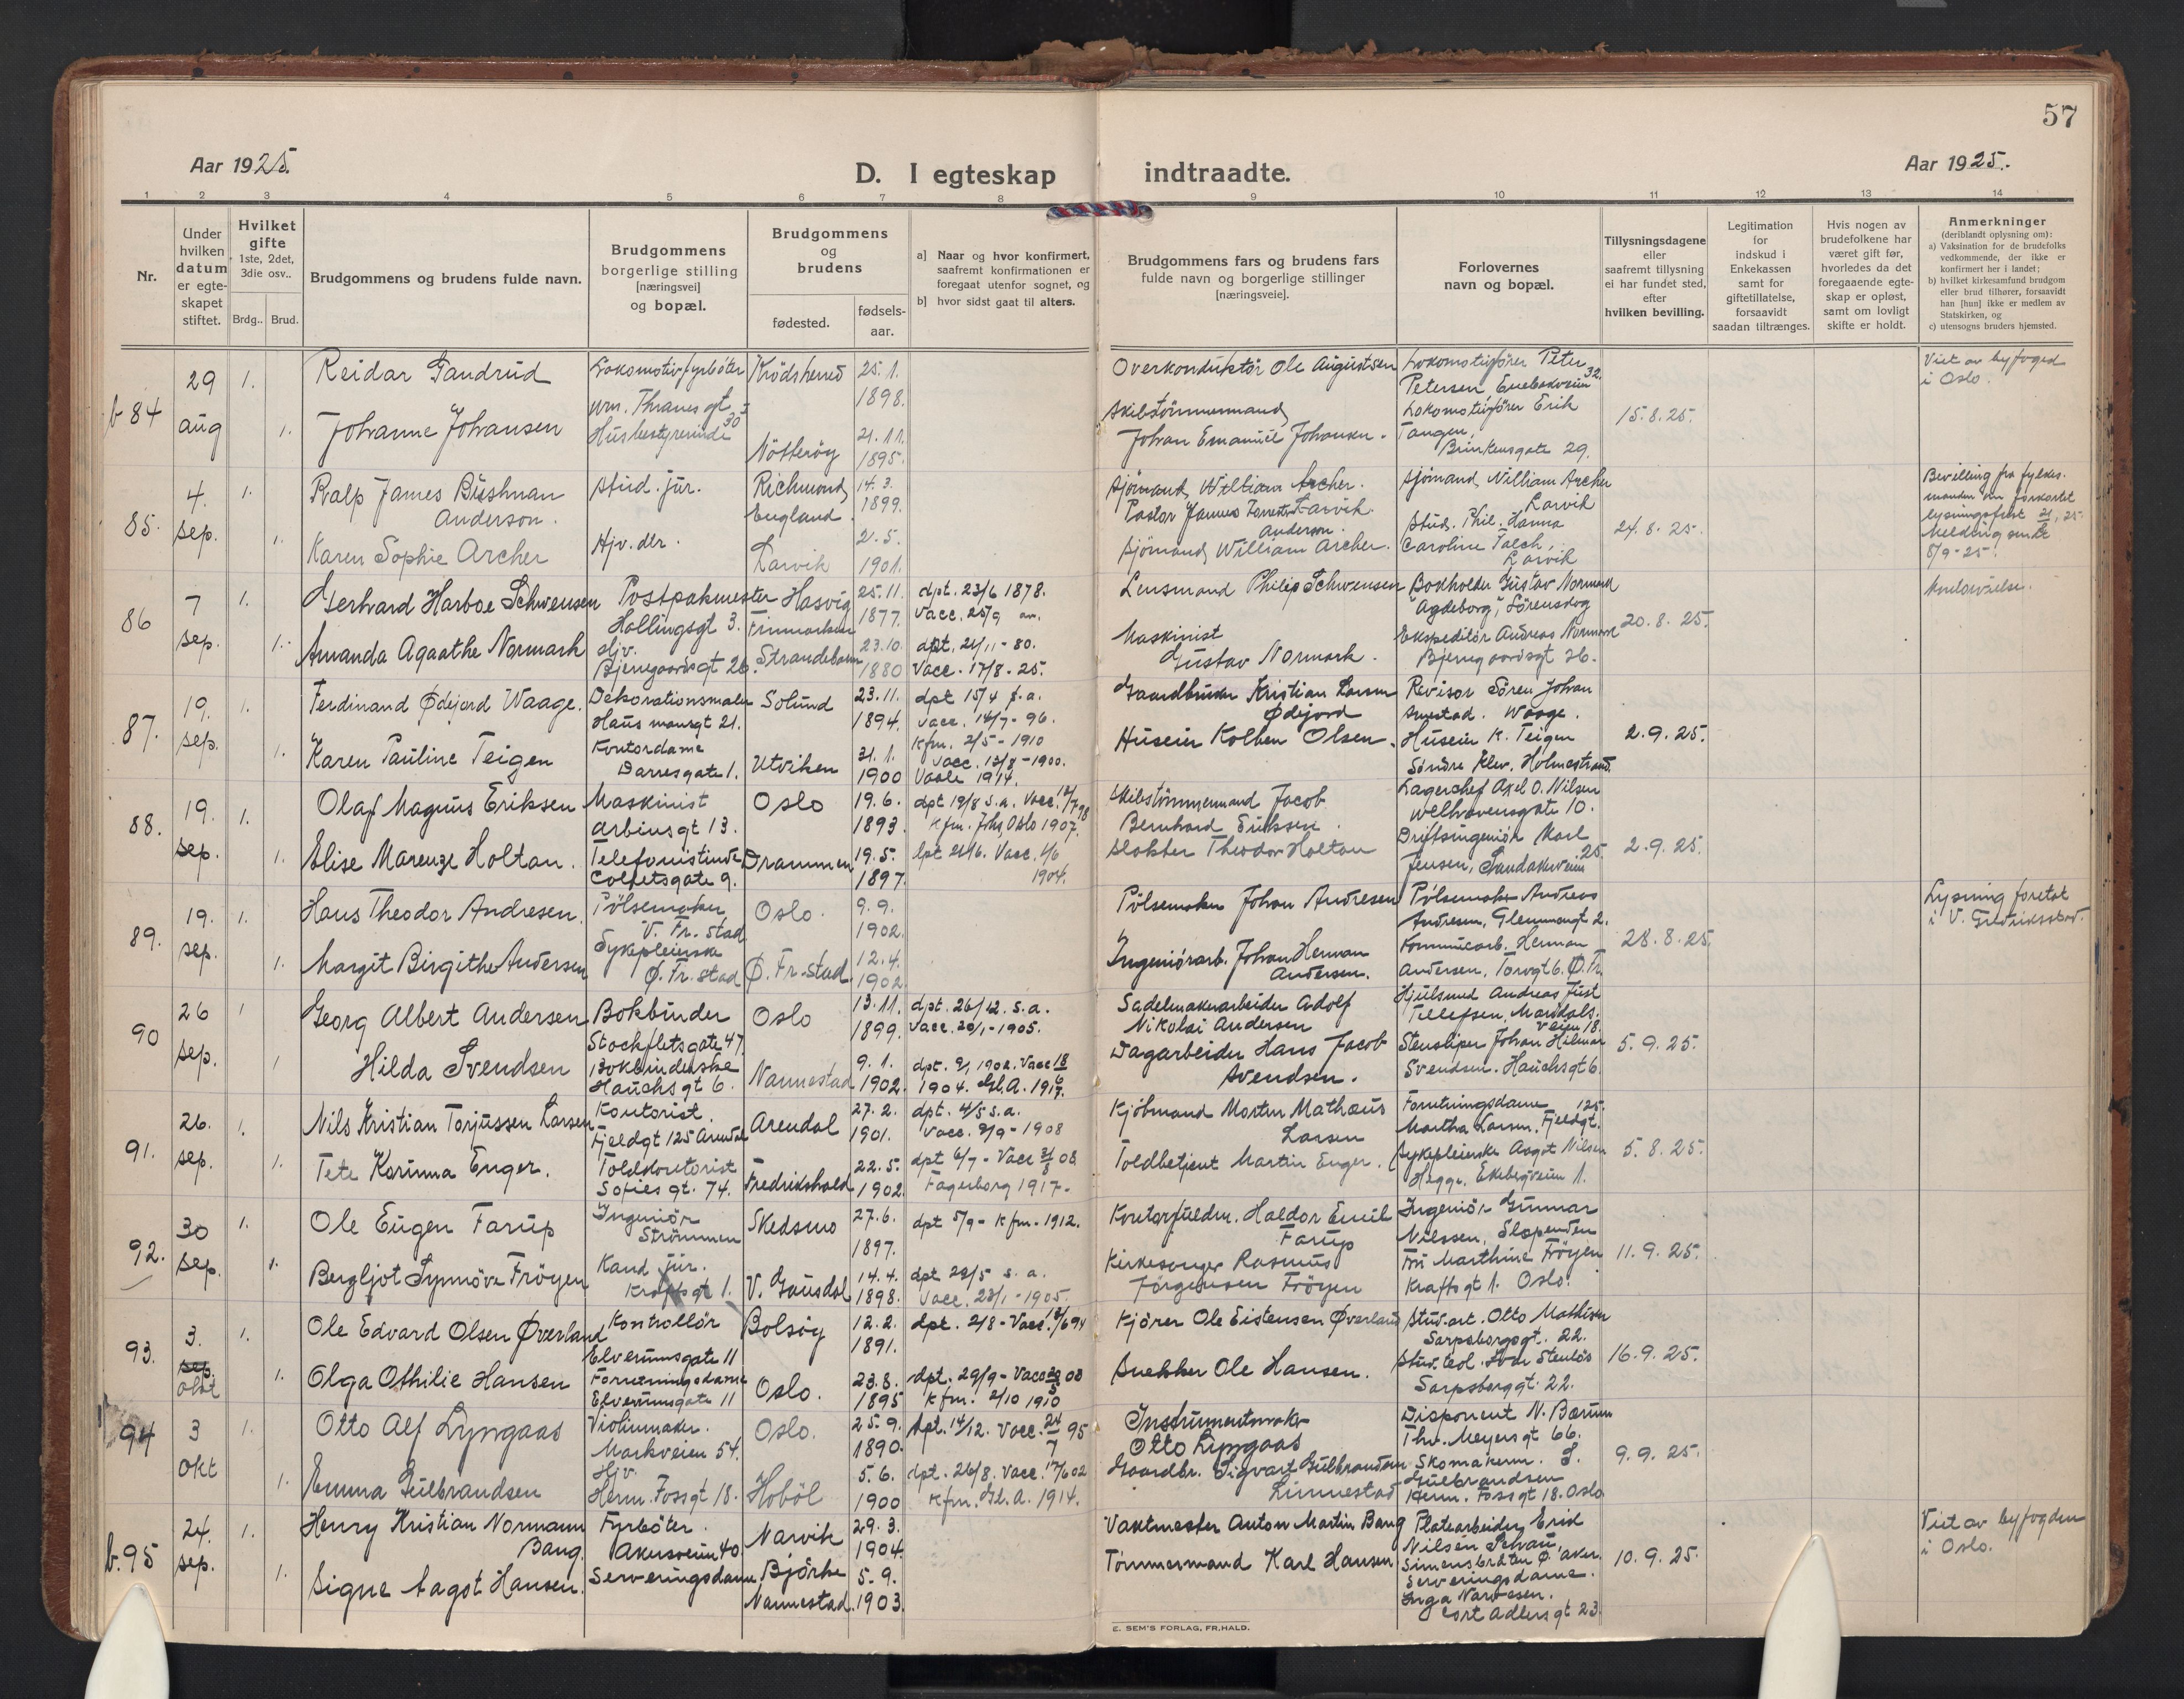 57
Aar 1925.
D. I egteskap indtraadte.
Aar 1925.
1 2 3 4 5 6 7 8 9 10 11 12 13 14
Nr.
Under
hvilken
datum
er egte-
skapet
stiftet.
Hvilket
gifte
1ste, 2det,
3die osv..
Brdg..
Brud.
Brudgommens og brudens fulde navn.
Brudgommens
borgerlige stilling
[næringsvei]
og bopæl.
Brudgommens
og
brudens
fødested.
fødsels-
aar.
a] Naar og hvor konfirmert,
saafremt konfirmationen er
foregaat utenfor sognet, og
b] hvor sidst gaat til alters.
Brudgommens fars og brudens fars
fulde navn og borgerlige stillinger
[næringsveie].
Forlovernes
navn og bopæl.
Tillysningsdagene
eller
saafremt tillysning
ei har fundet sted,
efter
hvilken bevilling.
Legitimation
for
indskud i
Enkekassen
samt for
giftetillatelse,
forsaavidt
saadan tiltrænges.
Hvis nogen av
brudefolkene har
været gift før,
hvorledes da det
foregaaende egte-
skap er opløst,
samt om lovligt
skifte er holdt.
Anmerkninger
(deriblandt oplysning om):
a) Vaksination for de brudefolks
vedkommende, der ikke er
konfirmert her i landet;
b) hvilket kirkesamfund brudgom
eller brud tilhører, forsaavidt
han [hun] ikke er medlem av
Statskirken, og
c) utensogns bruders hjemsted.
b 84
29
aug
1.
1.
Reidar Gandrud
Johanne Johansen
Lokomotivfyrbøter
Wm. Thranes gt
30
Husbestyrerinde
Krødsherred
Nøtterøy
25.1.
1898.
21.11.
1895.
Overkonduktør Ole Augustsen
Skibstømmermand
Johan Emanuel Johansen.
Lokomotivfører Peter
Petersen, Enebakveien 32.
Lokomotivfører Erik
Tangen,
Brinkensgate 29.
15.8.25.
Viet av byfoged
i Oslo.
85.
4.
sep.
1.
1.
Ralp James Bushnan
Anderson.
Karen Sophie Archer
stud. jur.
Hjv. dtr.
Richmond,
England
Larvik
14.3.
1899.
2.5.
1901.
Sjömand, William Archer.
Larvik.
Pastor James
Anderson.
Sjömand, William Archer.
Sjömand, William Archer
Larvik
Stud. Phil. Hanna
Caroline Falch,
Larvik
24.8.25.
Bevilling fra fylkes-
manden om forkortet
lysningsfrist
Melding sendt
8/9-25
86
7
sep.
1.
1.
Gerhard Harboe Schwensen
Amanda Agaathe Normark
Postpakmester
Hollingsgt 3.
Hjv.
Bjerregaardsgt 26.
Hasvig
Finmarken
Strandebarm
25.11.
1877.
23.10.
1880
dpt. 23/6 1878.
Vacc. 25/9
dpt. 21/11-80.
Vacc. 17/8-25.
Lensmand Philip Schwensen
Maskinist
Gustav Normark.
Bokholder Gustav Normark
"Agdeborg", Sörenskog
Ekspeditör Andreas Normark
Bjerregaardsgt 26.
20.8.25.
87.
19.
sep.
1.
1.
Ferdinand Ødejord Waage.
Karen Pauline Teigen
Dekorationsmaler
Hausmansgt 21.
Kontordame
Darresgate 1.
Solund
Utviken
23.11.
1894.
31.1.
1900
dpt 15/4 f.a.
vacc. 14/7-96.
Kfm. 2/5-1910
vacc. 13/8-1900.
Vaale 1914.
Gaardbruker Kristian Larsen
Ødejord
Huseier Kolben Olsen.
Revisor Sören Johan
Waage.
Huseier K. Teigen
Söndre Klev. Holmestrand.
2.9.25.
88.
19.
sep.
1.
1.
Olaf Magnus Eriksen
Elise Marenze Holtan.
Maskinist
Arbinsgt 13.
Telefonistinde
Colletsgate 9.
Oslo
Drammen
19.6.
1893.
19.5.
1897.
dpt 19/8 s.a. Vacc. 12/7 98
Kfm. Johs, Oslo 1907.
dpt 21/6. Vacc. 1/6
1904.
Skibstömmermand Jacob
Bernhard Eriksen.
Slakter Theodor Holtan
Lagerchef Axel O. Nilsen
Welhavensgate 10.
Driftsingeniör Karl
Jensen, Sandakerveien 25.
2.9.25.
89.
19.
sep.
1.
1.
Hans Theodor Andresen.
Margit Birgithe Andersen
Pölsemaker,
V. Fr.stad
Sykepleierske
Ø. Fr.stad
Oslo.
Ø. Fr.stad
9.9.
1902.
12.4.
1902
Pölsemaker Johan Andresen
Ingeniörarb. Johan Herman
Andersen.
Pölsemaker Andreas
Andresen, Glemmengt 2.
Kommunearb. Herman
Andersen, Torvgt 6. Ø. Fr.
28.8.25.
Lysning foretat
i V. Fredriksstad.
90
26
sep.
1
1
Georg Albert Andersen
Hilda Svendsen
Bokbinder
Stockfletsgate 47
Bokbinderske
Hauchsgt 6.
Oslo
Nannestad
13.11.
1899.
9.1.
1902.
dpt. 26/12. s.a.
Vacc. 20/1-1905.
dpt. 9/ 1902. Vacc 18/6
1904. Gl.A. 1917.
Sadelmakerarbeider Adolf
Nikolai Andersen
Dagarbeider Hans Jacob
Svendsen.
Hjulsmed Andreas Just
Tellefsen, Maridals-
veien 18.
Stensliper Johan Hilmar
Svendsen. Hauchsgt 6.
5.9.25.
91.
26.
sep.
1.
1.
Nils Kristian Torjussen Larsen
Tete Korinna Enger.
Kontorist.
Fjeldgt 125 Arendal
Toldkontorist
Sofies gt. 74.
Arendal
Fredrikshald
27.2.
1901.
22.5.
1902.
dpt. 4/5 s.a.
Vacc. 9/9-1908
dpt 6/7 - Vacc 31/8 08.
Fagerborg 1917-
Kjöbmand Morten Mathæus
Larsen
Toldbetjent Martin Enger.
Forretningsdame
Martha Larsen, Fjeldgt. 125.
Sykepleierske Aagot Nilsen
Hegge. Ekebergveien 1.
5.8.25.
92.
30
sep.
1.
1.
Ole Eugen Farup
Bergljot Synnöve Fröyen
Ingeniör
Strömmen
Kand. jur.
Kraftsgt 1.
Skedsmo
V. Gausdal
27.6.
1897.
14.4.
1898.
dpt 5/9 - Kfm. 1912.
dpt 29/5 s.a.
Vacc. 23/1-1905.
Kontorfuldm. Haldor Emil
Farup
Kirkesanger Rasmus
Jörgensen Fröyen
Ingeniör Gunnar
Nielssen, Slependen
Fru Marthine Fröyen
Kraftsgt 1. Oslo.
11.9.25.
93.
3.
sep.
okt
1.
1.
Ole Edvard Olsen Øverland
Olga Othilie Hansen
Kontrollör
Elverumsgate 11
Forretningsdame
Elverumsgate 11
Bolsöy
Oslo.
12.2.
1891.
23.8.
1895
dpt. 2/8 - Vacc. 94
dpt. 29/9 - Vacc 03
Kfm. 2/10 1910
Kjörer Ole Eistensen Øverland
Snekker Ole Hansen.
Stud. art. Otto Mathisen
Sarpsborggt. 22.
Stud. teol. Ivar Stenlös
Sarpsborggt. 22.
16.9.25.
94
3
okt
1.
1.
Otto Alf Lyngaas
Emma Gulbrandsen
Violinmaker.
Markveien 54.
Hjv.
Herm. Fossgt 18.
Oslo.
Hobøl
25.9.
1890.
5.6.
1900
dpt. 14/12. Vacc. 24/7 95
dpt. 26/8. Vacc. 17/6 02
Kfm. Gl. A. 1914.
Instrumentmaker
Otto Lyngaas
Gaardbr. Sigvart Gulbrandsen
Linnestad
Disponent N. Bærum
Thv. Meyersgt 66.
Skomakerm. S.
Gulbrandsen
Herm. Fossgt 18. Oslo
9.9.25.
b. 95
24.
sep.
1.
1.
Henry Kristian Normann
Bang.
Signe Aagot Hansen.
Fyrböter.
Akersveien 40
Serveringsdame
Narvik
Björke
Nannestad.
29.3.
1904.
5.9.
1903.
Vaktmester Anton Martin Bang
Tömmermand Karl Hansen
Platearbeider Erik
Nilsen
Ø. Aker.
Serveringsdame.
Inga Narvesen.
Cort Adlersgt 23.
10.9.25.
Viet av byfogden
i Oslo.
E. SEM'S FORLAG, FR.HALD.